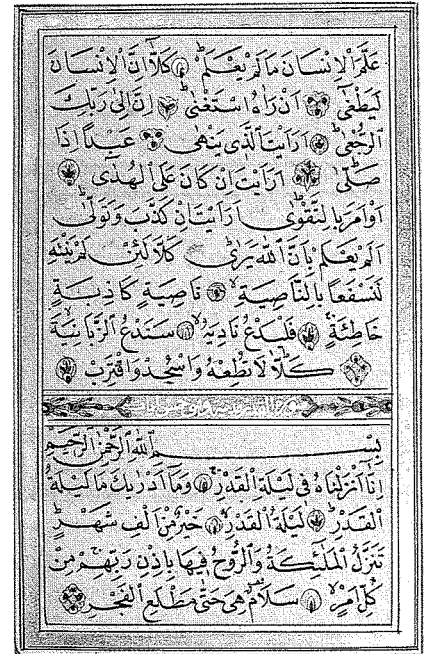 عَلَّمَ الْاِنْسَانَ مَا لَمْ يَعْلَمْ كَلَّا اِنَّ الْاِنْسَانَ
لَيَطْغٰى اَنْ رَاٰهُ اسْتَغْنٰى اِنَّ اِلٰى رَبِّكَ
الرُّجْعٰى اَرَاَيْتَ الَّذٖى يَنْهٰى عَبْدًا اِذَا
صَلّٰى اَرَاَيْتَ اِنْ كَانَ عَلَى الْهُدٰى
اَوْ اَمَرَ بِالتَّقْوٰى اَرَاَيْتَ اِنْ كَذَّبَ وَتَوَلّٰى
اَلَمْ يَعْلَمْ بِاَنَّ اللّٰهَ يَرٰى كَلَّا لَئِنْ لَمْ يَنْتَهِ
لَنَسْفَعًا بِالنَّاصِيَةِ نَاصِيَةٍ كَاذِبَةٍ
خَاطِئَةٍ فَلْيَدْعُ نَادِيَهُ سَنَدْعُ الزَّبَانِيَةَ
كَلَّا لَا تُطِعْهُ وَاسْجُدْ وَاقْتَرِبْ
بِسْمِ اللّٰهِ الرَّحْمٰنِ الرَّحِيمِ
اِنَّا اَنْزَلْنَاهُ فِى لَيْلَةِ الْقَدْرِ وَمَا اَدْرٰيكَ مَا لَيْلَةُ
الْقَدْرِ لَيْلَةُ الْقَدْرِ خَيْرٌ مِنْ اَلْفِ شَهْرٍ
تَنَزَّلُ الْمَلٰئِكَةُ وَالرُّوحُ فِيهَا بِاِذْنِ رَبِّهِمْ مِنْ
كُلِّ اَمْرٍ سَلَامٌ هِىَ حَتّٰى مَطْلَعِ الْفَجْرِ